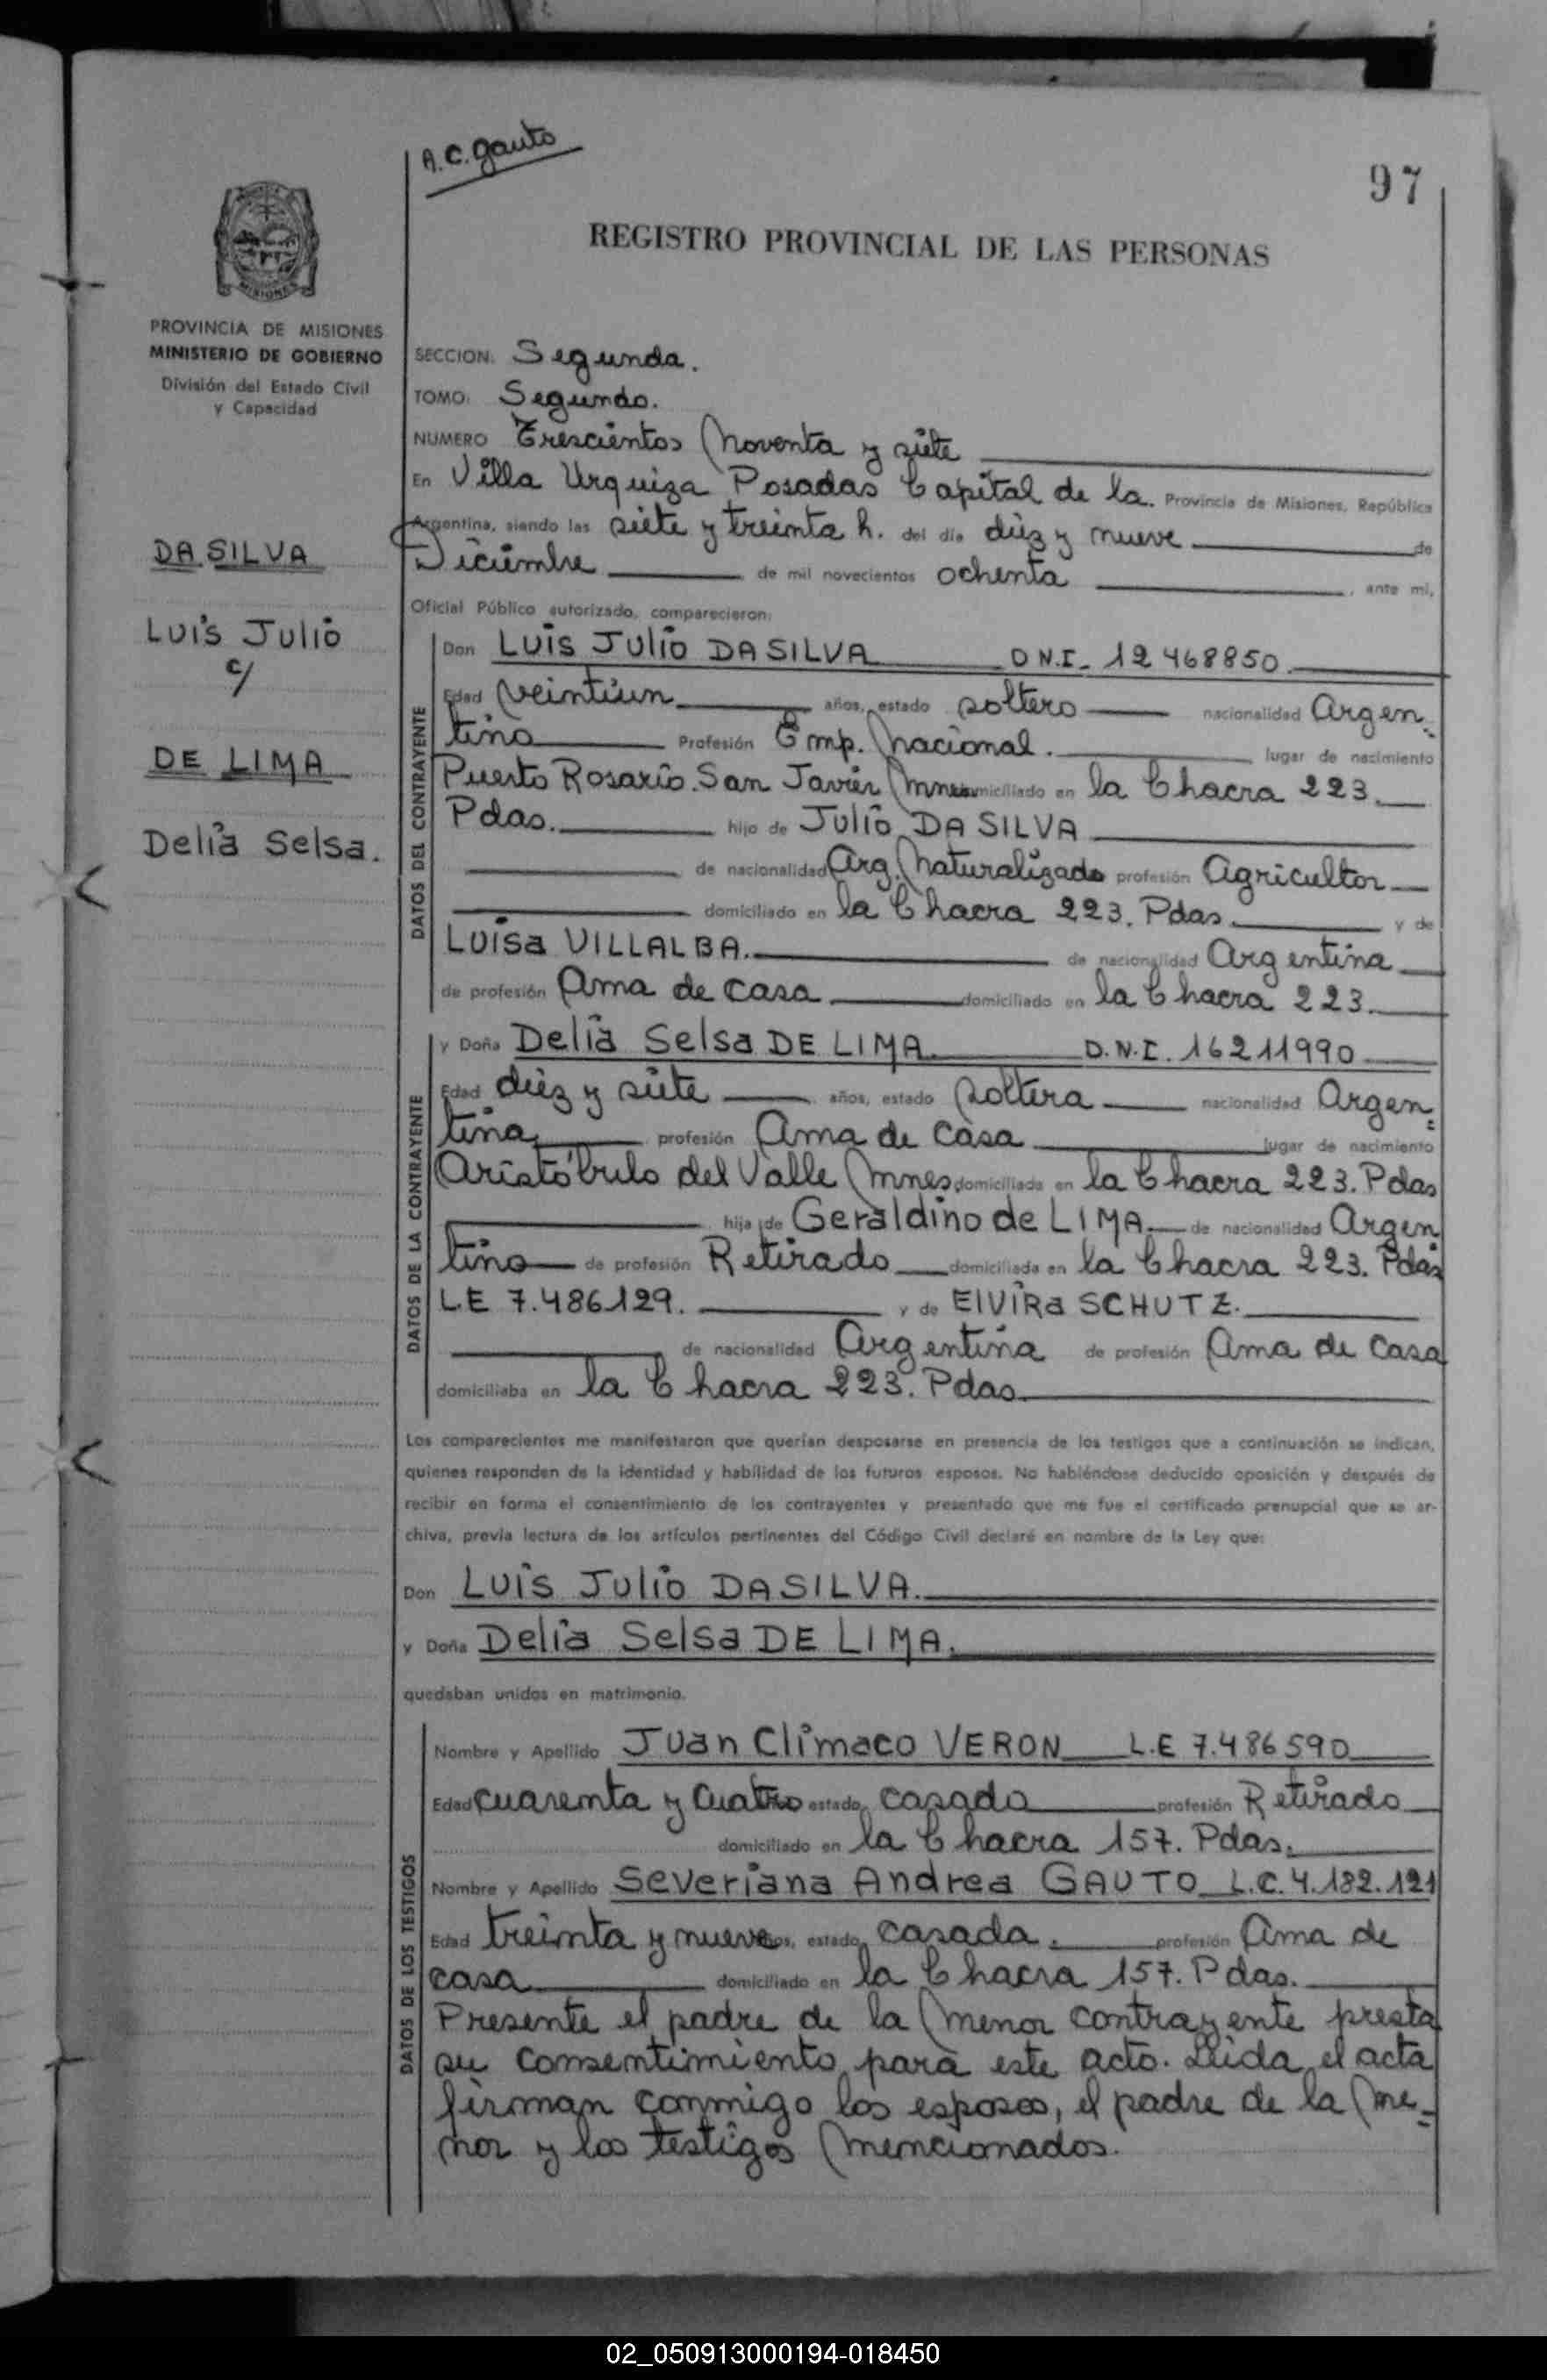 A.C. Gauto
97
REGISTRO PROVINCIAL DE LAS PERSONAS
MISIONES
PROVINCIA DE MISIONES
MINISTERIO DE GOBIERNO
División del Estado Civil
y Capacidad
DA SILVA
Luis Julio
c/
DE LIMA
Delia Selsa.
SECCION: Segunda.
TOMO: Segundo.
NUMERO Trescientos Noventa y siete
En Villa Urquiza Posadas Capital de la. Provincia de Misiones, República
Argentina, siendo las siete y treinta h. del día diez y nueve de
Diciembre de mil novecientos ochenta, ante mí,
Oficial Público autorizado, comparecieron:
DATOS DEL CONTRAYENTE
Don Luis Julio DA SILVA D N.I. 12468850.
Edad veintiun años, estado soltero nacionalidad Argen
tino Profesión Emp. Nacional. lugar de nacimiento
Puerto Rosario. San Javier Mnes domiciliado en la Chacra 223.
Pdas. hijo de Julio DA SILVA
de nacionalidad Arg. Naturalizado profesión Agricultor
domiciliado en la Chacra 223. Pdas. y de
Luisa VILLALBA. de nacionalidad Argentina
de profesión Ama de casa domiciliado en la Chacra 223.
DATOS DE LA CONTRAYENTE
y Doña Delia Selsa DE LIMA. D.N.I. 16211990
Edad diez y siete años, estado soltera nacionalidad Argen
tina, profesión Ama de Casa lugar de nacimiento
Aristóbulo del Valle Mnes domiciliada en la Chacra 223. Pdas
hija de Geraldino de LIMA. de nacionalidad Argen
tino de profesión Retirado domiciliada en la Chacra 223. Pdas
L.E 7.486.129. y de Elvira SCHUTZ.
de nacionalidad Argentina de profesión Ama de Casa
domiciliaba en la Chacra 223. Pdas.
Los comparecientes me manifestaron que querían desposarse en presencia de los testigos que a continuación se indican,
quienes responden de la identidad y habilidad de los futuros esposos. No habiéndose deducido oposición y después de
recibir en forma el consentimiento de los contrayentes y presentado que me fue el certificado prenupcial que se ar-
chiva, previa lectura de los artículos pertinentes del Código Civil declaré en nombre de la Ley que:
Don Luis Julio DA SILVA.
y Doña Delia Selsa DE LIMA.
quedaban unidos en matrimonio.
DATOS DE LOS TESTIGOS
Nombre y Apellido Juan Climaco VERON L.E 7.486590
Edad cuarenta y cuatro estado, casado profesión Retirado
domiciliado en la Chacra 157. Pdas.
Nombre y Apellido Severiana Andrea GAUTO L.C. 4.132.121
Edad treinta y nueve años, estado, casada. profesión Ama de
casa domiciliado en la Chacra 157. Pdas.
Presente el padre de la menor contrayente presta
su consentimiento para este acto. Leida el acta
firman conmigo los esposos, el padre de la me-
nor y los testigos mencionados.
02_050913000194-018450